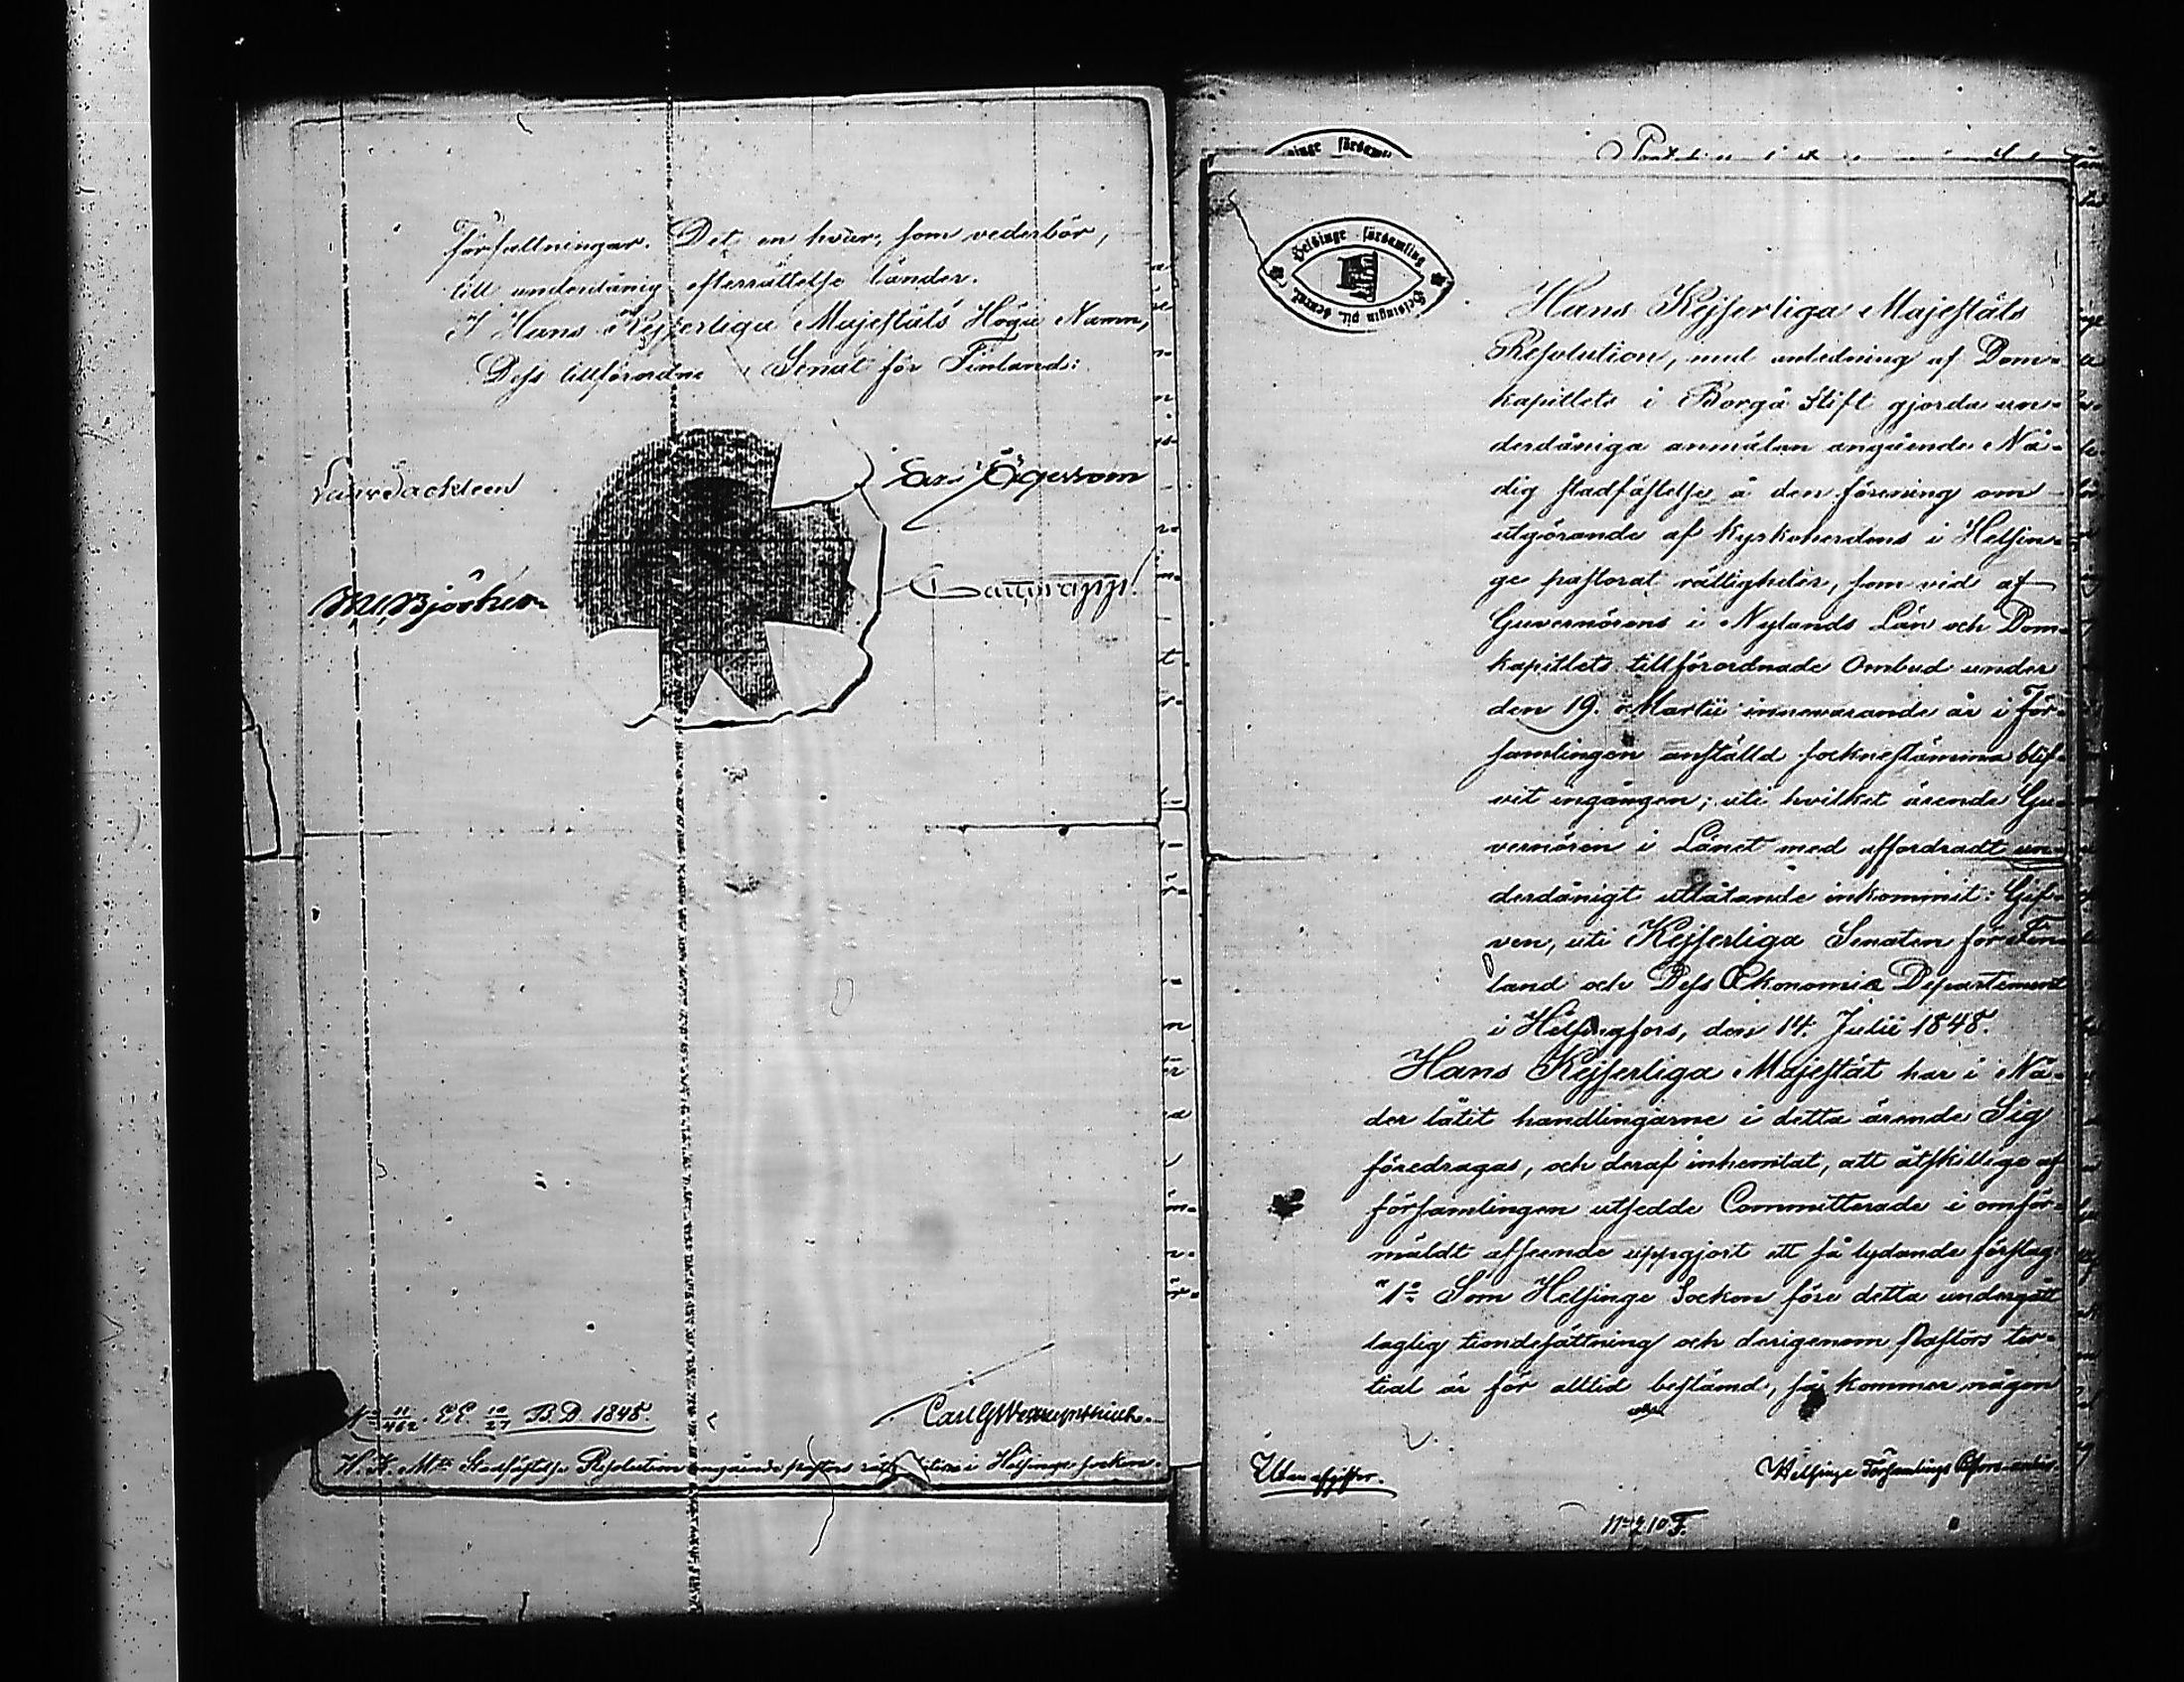 författningar. Det en hvar, som vederbör,
till underdånig efterrättelse länder.
I Hans Kejserliga Majestäts Höga Namn,
Dess tillförordnade Senat för Finland:
Björken
Nº 11/462. EE. 10/27 B.D. 1848.
H. K. Mts Stadfästelse Resolution angående pastors rättigheter i Helsinge socken.
Helsinge församling
Helsingin pit. seurak.
Hans Kejserliga Majestäts
Resolution, med anledning af Dom-
kapitlets i Borgå Stift gjorda un-
derdåniga anmälan angående Nå-
dig stadfästelse å den förening om
utgörande af kyrkoherdens i Helsin-
ge pastorat rättigheter, som vid af
Guvernörens i Nylands Län och Dom-
kapitlets tillförordnade Ombud under
den 19. Martii innevarande år i För-
samlingen anställd socknestämma blif-
vit ingången; uti hvilket ärende Gu-
vernören i Länet med affordradt un-
derdånigt utlåtande inkommit: Gif-
ven, uti Kejserliga Senaten för Fin-
land och Dess Oekonomie Departement
i Helsingfors, den 14. Julii 1848.
Hans Kejserliga Majestät har i Nå-
der låtit handlingarne i detta ärende Sig
föredragas, och deraf inhemtat, att åtskillige af
församlingen utsedde Committerade i omför-
mäldt afseende uppgjort ett så lydande förslag:
"1º Som Helsinge Socken före detta undergått
laglig tiondesättning och derigenom Pastors ter-
tial är för alltid bestämd, så kommer någon
Utan afgifter.
Helsinge Församlings
Nº 210 F.